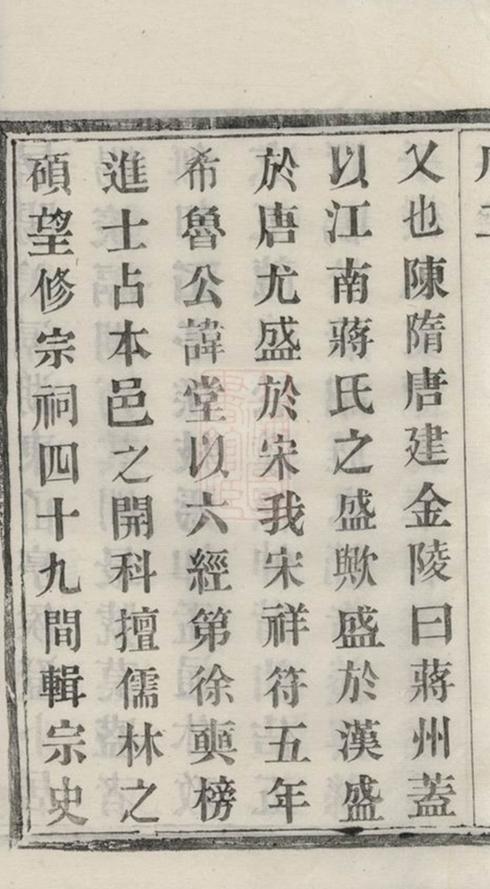 又也陳隋唐建金陵曰蔣州蓋
以江南蔣氏之盛歟盛於漢盛
於唐尤盛於宋我宋祥符五年
希魯公諱堂以六經第徐奭榜
進士占本邑之開科擅儒林之
碩望修宗祠四十九間輯宗史